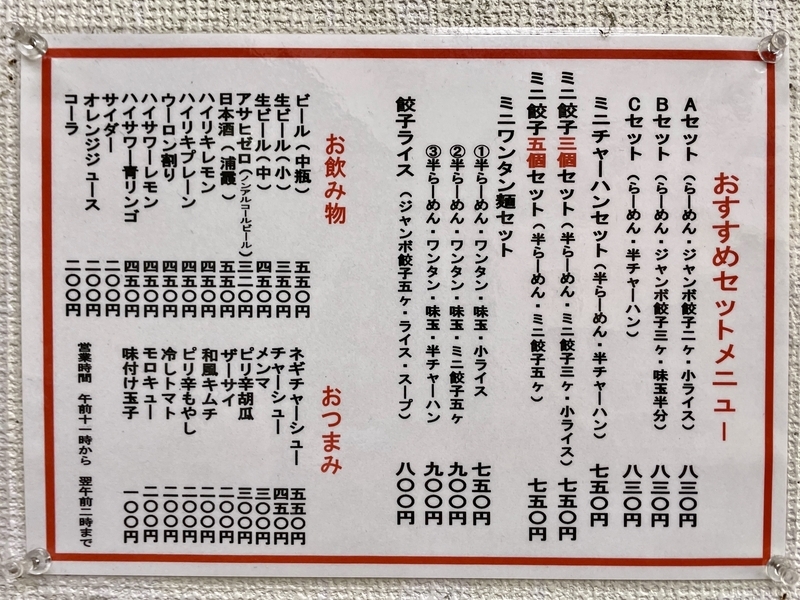 おすすめセットメニュー
Aセット(らーめん・ジャンボ餃子二ヶ・小ライス) 八三〇円
Bセット(らーめん・ジャンボ餃子三ヶ・味玉半分) 八三〇円
Cセット(らーめん・半チャーハン) 八三〇円
ミニチャーハンセット(半らーめん・半チャーハン) 七五〇円
ミニ餃子三個セット(半らーめん・ミニ餃子三ヶ・小ライス) 七五〇円
ミニ餃子五個セット(半らーめん・ミニ餃子五ヶ) 七五〇円
ミニワンタン麺セット
①半らーめん・ワンタン・味玉・小ライス 七五〇円
②半らーめん・ワンタン・味玉・ミニ餃子五ヶ 九〇〇円
③半らーめん・ワンタン・味玉・半チャーハン 九〇〇円
餃子ライス(ジャンボ餃子五ヶ・ライス・スープ) 八〇〇円
お飲み物
ビール(中瓶) 五五〇円
生ビール(小) 三五〇円
生ビール(中) 四五〇円
アサヒゼロ(ノンアルコールビール) 三二〇円
日本酒(浦霞) 五五〇円
ハイリキレモン 四五〇円
ハイリキプレーン 四五〇円
ウーロン割り 四五〇円
ハイサワーレモン 四五〇円
ハイサワー青リンゴ 四五〇円
サイダー 二〇〇円
オレンジジュース 二〇〇円
コーラ 二〇〇円
おつまみ
ネギチャーシュー 五五〇円
チャーシュー 四五〇円
メンマ 三〇〇円
ピリ辛胡瓜 三〇〇円
ザーサイ 二〇〇円
和風キムチ 二〇〇円
ピリ辛もやし 二〇〇円
冷しトマト 二〇〇円
モロキュー 二〇〇円
味付け玉子 一〇〇円
営業時間 午前十一時から 翌午前二時まで